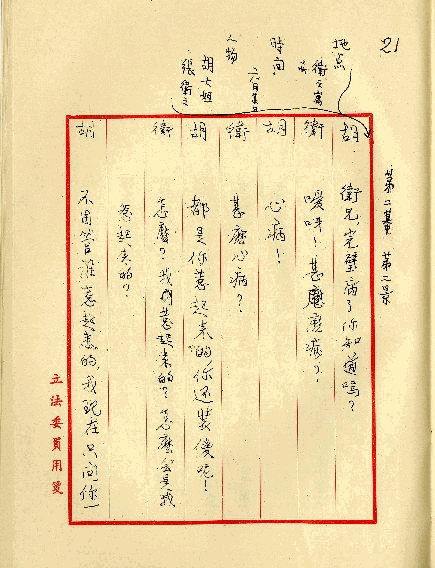 21
第二幕 第二景
地点
衛之寓
時间
六日
人物
胡七姐
張衛之
胡 衛兄,完璧病了你知道嗎?
衛 噯呀!甚麼病?
胡 心病!
衛 甚麼心病?
胡 都是你惹起來的,你还裝傻呢!
衛 怎麼?我惹起來的?怎麼会是我
惹起來的?
胡 不用管誰惹起來的,我現在只问你一
立法委員用箋